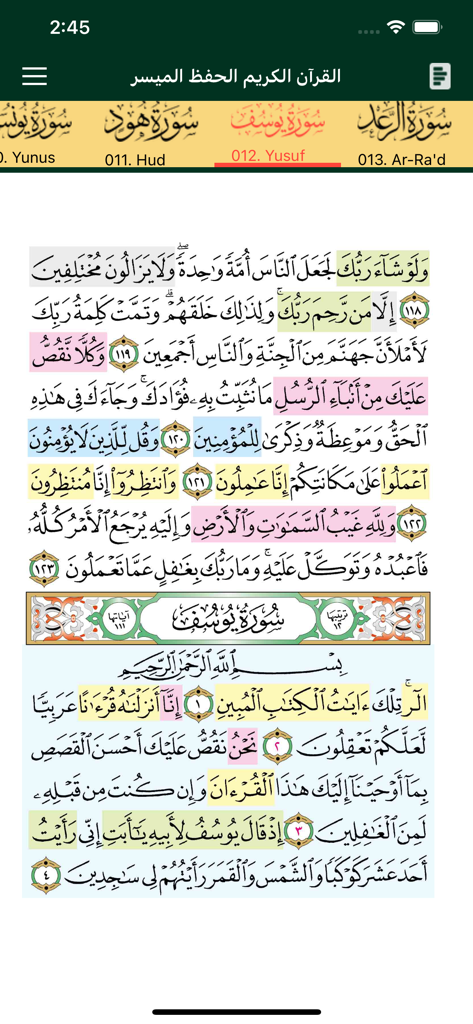 2:45
القرآن الكريم الحفظ الميسر
سورة يونس
سورة هود
سورة يوسف
سورة الرعد
0. Yunus
011. Hud
012. Yusuf
013. Ar-Ra'd
وَلَوْ شَآءَ رَبُّكَ لَجَعَلَ ٱلنَّاسَ أُمَّةً وَٰحِدَةً ۖ وَلَا يَزَالُونَ مُخْتَلِفِينَ
١١٨ إِلَّا مَن رَّحِمَ رَبُّكَ ۚ وَلِذَٰلِكَ خَلَقَهُمْ ۗ وَتَمَّتْ كَلِمَةُ رَبِّكَ
لَأَمْلَأَنَّ جَهَنَّمَ مِنَ ٱلْجِنَّةِ وَٱلنَّاسِ أَجْمَعِينَ ١١٩ وَكُلًّا نَّقُصُّ
عَلَيْكَ مِنْ أَنۢبَآءِ ٱلرُّسُلِ مَا نُثَبِّتُ بِهِۦ فُؤَادَكَ ۚ وَجَآءَكَ فِى هَٰذِهِ
ٱلْحَقُّ وَمَوْعِظَةٌ وَذِكْرَىٰ لِلْمُؤْمِنِينَ ١٢٠ وَقُل لِّلَّذِينَ لَا يُؤْمِنُونَ
ٱعْمَلُوا۟ عَلَىٰ مَكَانَتِكُمْ إِنَّا عَٰمِلُونَ ١٢١ وَٱنتَظِرُوٓا۟ إِنَّا مُنتَظِرُونَ
١٢٢ وَلِلَّهِ غَيْبُ ٱلسَّمَٰوَٰتِ وَٱلْأَرْضِ وَإِلَيْهِ يُرْجَعُ ٱلْأَمْرُ كُلُّهُۥ
فَٱعْبُدْهُ وَتَوَكَّلْ عَلَيْهِ ۚ وَمَا رَبُّكَ بِغَٰفِلٍ عَمَّا تَعْمَلُونَ ١٢٣
ترتيبها ١٢ سُورَةُ يُوسُفَ آياتها ١١١
بِسْمِ ٱللَّهِ ٱلرَّحْمَٰنِ ٱلرَّحِيمِ
الٓر ۚ تِلْكَ ءَايَٰتُ ٱلْكِتَٰبِ ٱلْمُبِينِ ١ إِنَّآ أَنزَلْنَٰهُ قُرْءَٰنًا عَرَبِيًّا
لَّعَلَّكُمْ تَعْقِلُونَ ٢ نَحْنُ نَقُصُّ عَلَيْكَ أَحْسَنَ ٱلْقَصَصِ
بِمَآ أَوْحَيْنَآ إِلَيْكَ هَٰذَا ٱلْقُرْءَانَ وَإِن كُنتَ مِن قَبْلِهِۦ
لَمِنَ ٱلْغَٰفِلِينَ ٣ إِذْ قَالَ يُوسُفُ لِأَبِيهِ يَٰٓأَبَتِ إِنِّى رَأَيْتُ
أَحَدَ عَشَرَ كَوْكَبًا وَٱلشَّمْسَ وَٱلْقَمَرَ رَأَيْتُهُمْ لِى سَٰجِدِينَ ٤